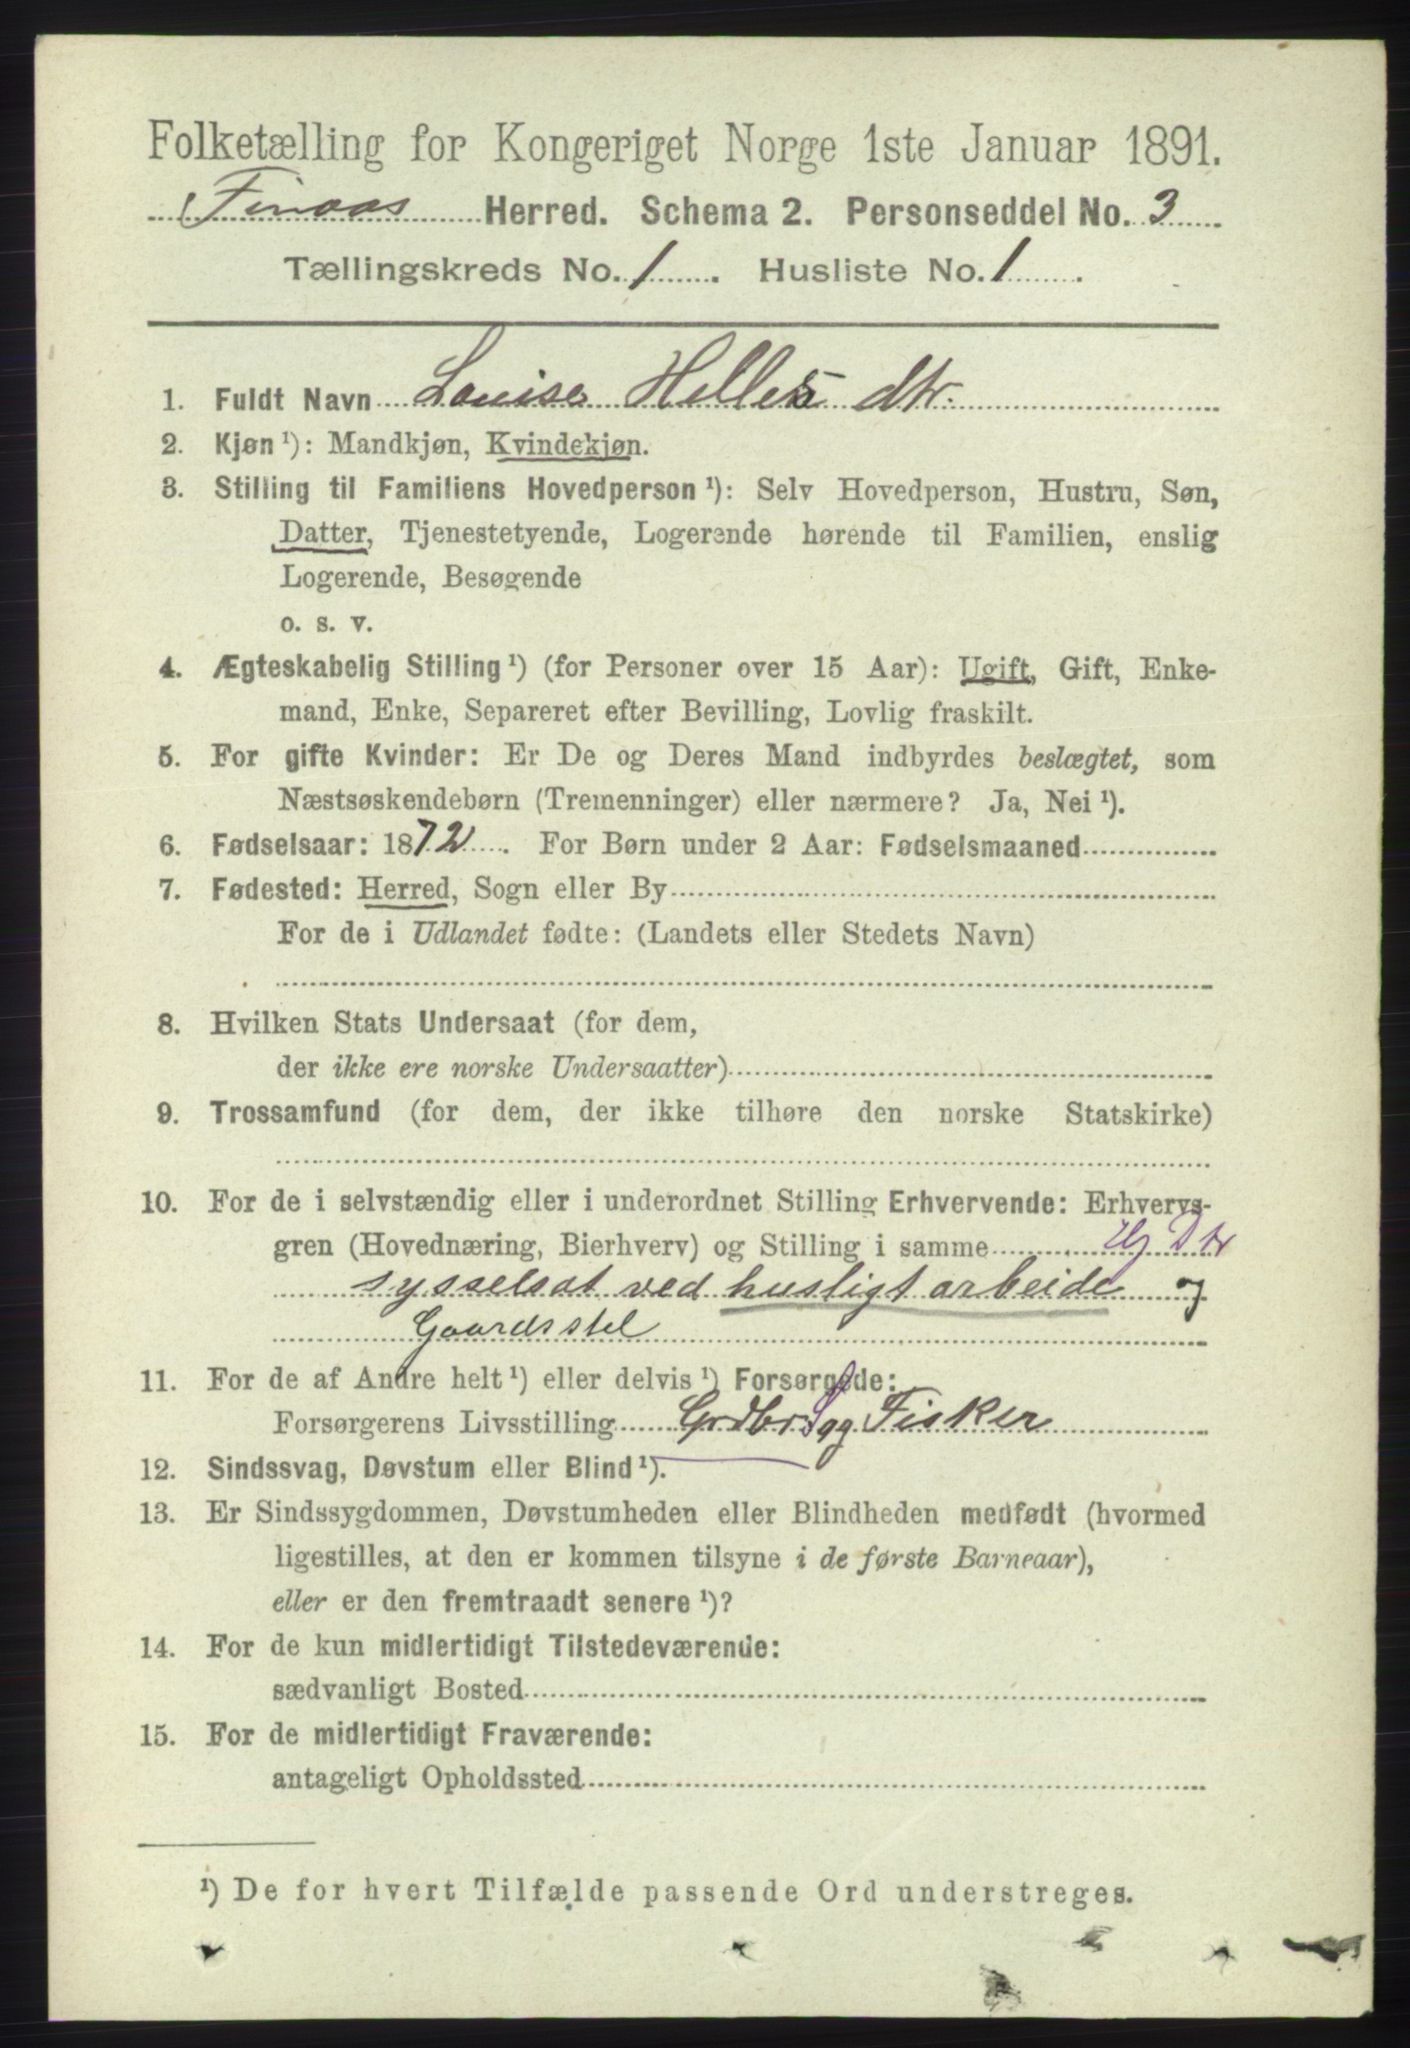 Folketælling for Kongeriget Norge 1ste Januar 1891.
Finaas Herred. Schema 2. Personseddel No. 3
Tællingskreds No. 1. Husliste No. 1.
1. Fuldt Navn Louise Helles dtr.
2. Kjøn ¹): Mandkjøn, Kvindekjøn.
3. Stilling til Familiens Hovedperson ¹): Selv Hovedperson, Hustru, Søn,
Datter, Tjenestetyende, Logerende hørende til Familien, enslig
Logerende, Besøgende
o. s. v.
4. Ægteskabelig Stilling ¹) (for Personer over 15 Aar): Ugift, Gift, Enke-
mand, Enke, Separeret efter Bevilling, Lovlig fraskilt.
5. For gifte Kvinder: Er De og Deres Mand indbyrdes beslægtet, som
Næstsøskendebørn (Tremenninger) eller nærmere? Ja, Nei ¹).
6. Fødselsaar: 1872. For Børn under 2 Aar: Fødselsmaaned
7. Fødested: Herred, Sogn eller By
For de i Udlandet fødte: (Landets eller Stedets Navn)
8. Hvilken Stats Undersaat (for dem,
der ikke ere norske Undersaatter)
9. Trossamfund (for dem, der ikke tilhøre den norske Statskirke)
10. For de i selvstændig eller i underordnet Stilling Erhvervende: Erhvervs-
gren (Hovednæring, Bierhverv) og Stilling i samme Hj Dtr
sysselsat ved husligt arbeide og
Gaardsstel
11. For de af Andre helt ¹) eller delvis ¹) Forsørgede:
Forsørgerens Livsstilling Grdbr S og Fisker
12. Sindssvag, Døvstum eller Blind ¹).
13. Er Sindssygdommen, Døvstumheden eller Blindheden medfødt (hvormed
ligestilles, at den er kommen tilsyne i de første Barneaar),
eller er den fremtraadt senere ¹)?
14. For de kun midlertidigt Tilstedeværende:
sædvanligt Bosted
15. For de midlertidigt Fraværende:
antageligt Opholdssted
¹) De for hvert Tilfælde passende Ord understreges.